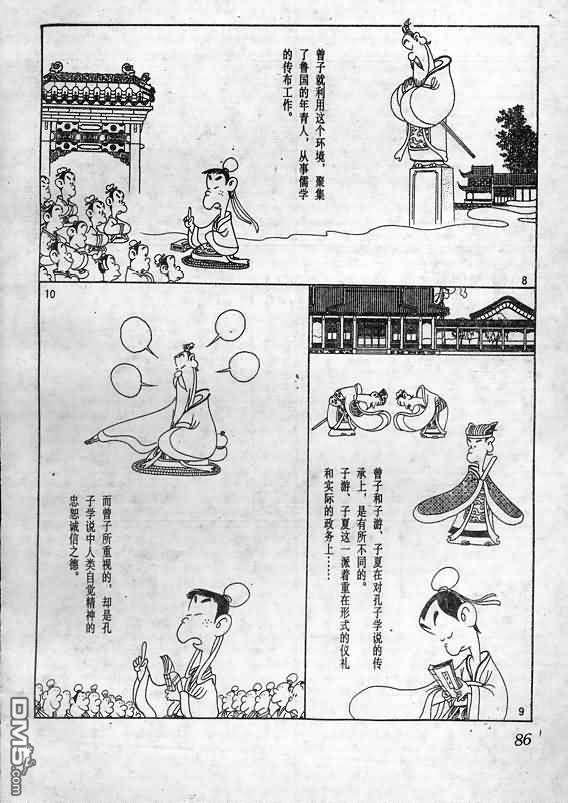 曾子就利用这个环境，聚集
了鲁国的年青人，从事儒学
的传布工作。
8
曾子和子游、子夏在对孔子学说的传
承上，是有所不同的。
子游、子夏这一派着重在形式的仪礼
和实际的政务上……
9
10
而曾子所重视的，却是孔
子学说中人类自觉精神的
忠恕诚信之德。
86
DM5.com